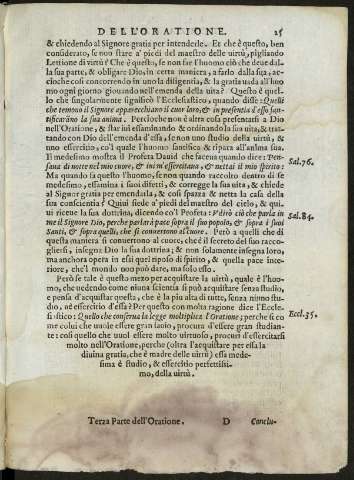 DELL'ORATIONE. 25
& chiedendo al Signore gratia per intenderle. Et che è questo, ben
considerato, se non stare a' piedi del maestro delle virtù, pigliando
Lettione di virtù? Che è questo, se non far l'huomo ciò che deue dal-
la sua parte, & obligare Dio, in certa maniera, a farlo dalla sua, ac-
cioche così concorrendo in uno la diligentia, & la gratia uada all'huo
mo ogni giorno giouando nell'emenda della uita? Questo è quel-
lo che singularmente significò l'Ecclesiastico, quando disse: Quelli
che temono il Signore apparecchiano il cuor loro, & in presentia d'esso san-
tificaranno la sua anima. Percioche non è altra cosa presentarsi a Dio
nell'Oratione, & star iui essaminando & ordinando la sua uita, & trat-
tando con Dio dell'emenda d'essa, se non uno studio della virtù, &
uno essercitio, co'l quale l'huomo santifica & ripara all'anima sua.
Il medesimo mostra il Profeta Dauid che faceua quando dice: Pen-
saua di notte nel mio cuore, & iui m'essercitaua, & nettai il mio spirito:
Ma quando fa questo l'huomo, se non quando raccolto dentro di se
medesimo, essamina i suoi difetti, & corregge la sua uita, & chiede
al Signor gratia per emendarla, & così spazza & netta la casa della
sua conscientia? Quiui siede a' piedi del maestro del cielo, & qui-
ui riceue la sua dottrina, dicendo co'l Profeta Vdirò ciò che parla in
me il Signore Dio, perche parlarà pace sopra il suo popolo, & sopra i suoi
Santi, & sopra quelli, che si conuertono al cuore. Però a quelli che di
questa maniera si conuertono al cuore, che è il secreto del suo racco-
gliersi, insegna Dio la sua dottrina; & non solamente insegna loro,
ma anchora opera in essi quel riposo di spirito, & quella pace inte-
riore, che'l mondo non può dare, ma solo esso.
Però se tale è questo mezo per acquistare la virtù, quale è l'huo-
mo, che uedendo come niuna scientia si può acquistare senza studio,
e pensa d'acquistar questa, che è la piu alta di tutte, senza niuno stu-
dio, nè essercitio d'essa? Per questo con molta ragione dice l'Eccle-
siastico: Quello che conserua la legge moltiplica l'Oratione; perche si co
me colui che uuole essere gran sauio, procura d'essere gran studian-
te: così quello che uuol essere molto uirtuoso, procuri d'essercitarsi
molto nell'Oratione, perche (oltra l'acquistare per essa la
diuina gratia, che è madre delle uirtù) essa mede-
sima è studio, & essercitio perfettissi-
mo, della uirtù.
Sal.76.
Sal.84.
Eccl.35.
Terza Parte dell'Oratione. D Conclu-